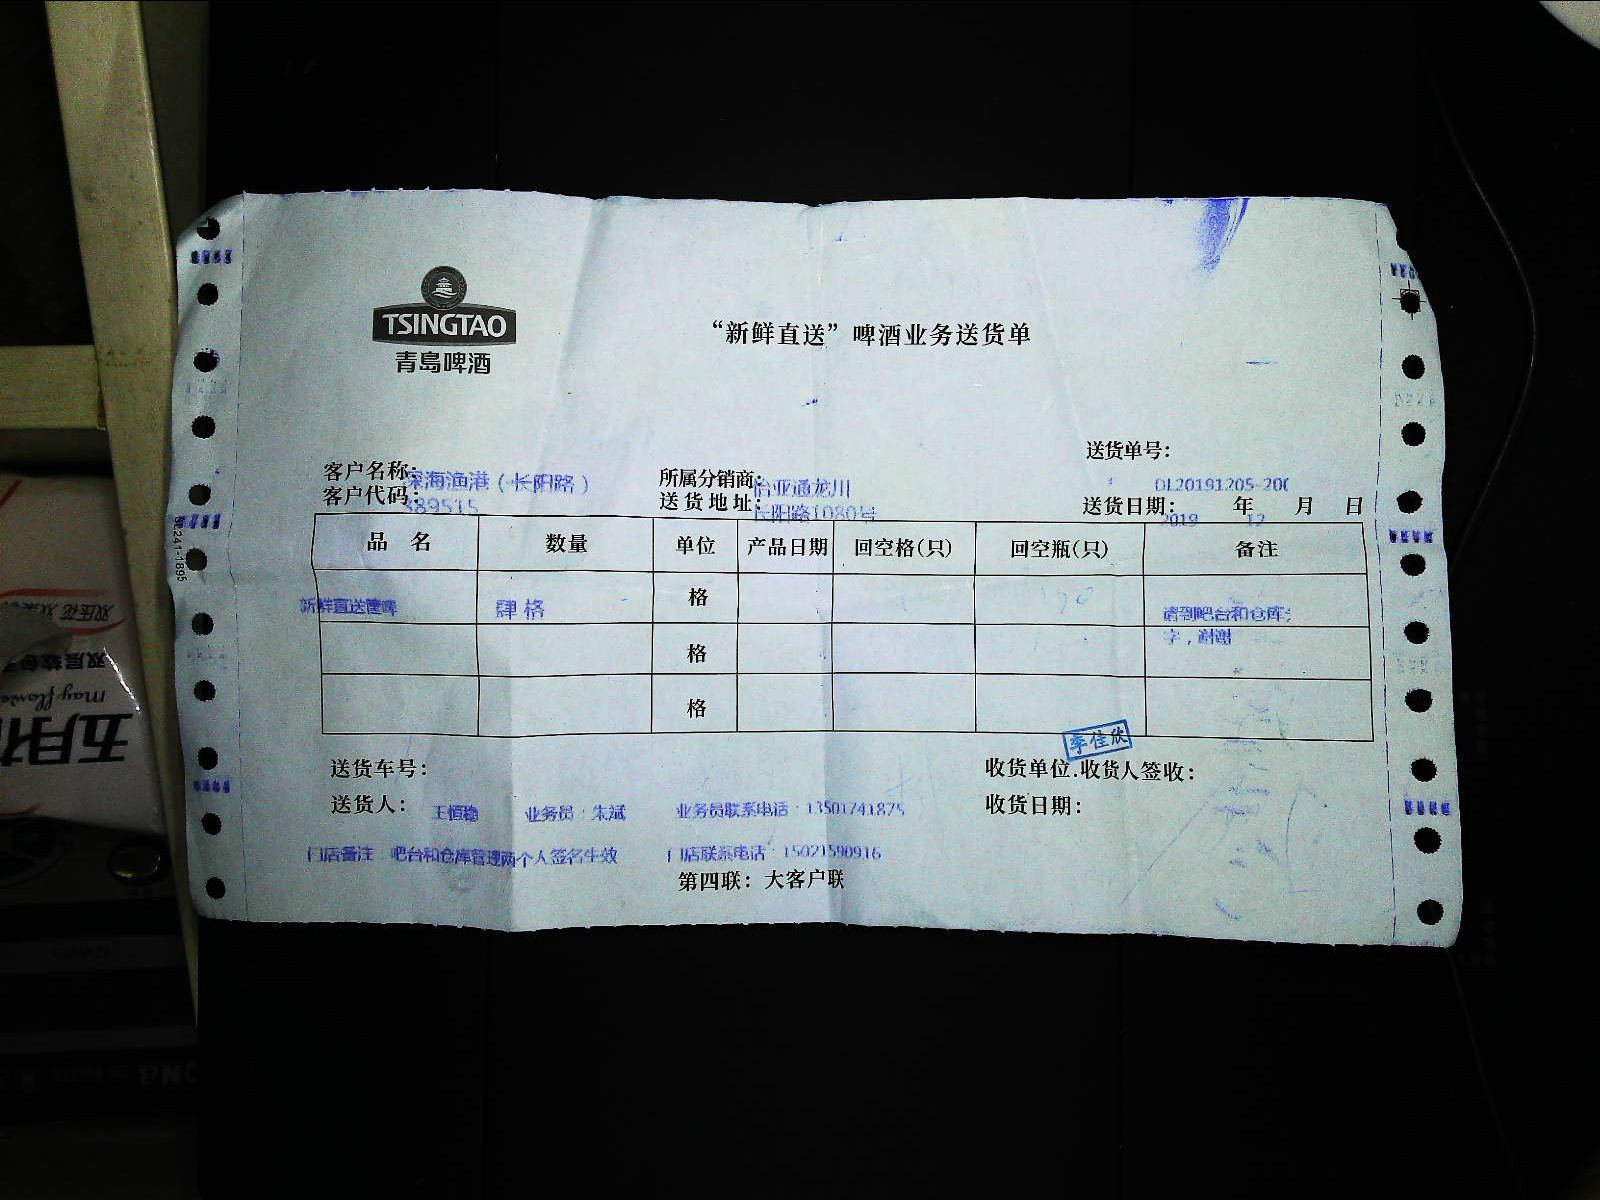 TSINGTAO
青岛啤酒
“新鲜直送”啤酒业务送货单
送货单号:
DL20191205-200
客户名称: 深海渔港(长阳路)
所属分销商: 怡亚通龙川
客户代码: 389515
送货地址: 长阳路1080号
送货日期: 2019 年 12 月 日
品 名 数量 单位 产品日期 回空格(只) 回空瓶(只) 备注
新鲜直送 肆 格 格 请到吧台和仓库
字,谢谢
格
格
李佳欣
送货车号: 收货单位.收货人签收:
送货人: 王恒稳 业务员:朱斌 业务员联系电话:13501741875 收货日期:
门店备注:吧台和仓库管理两个人签名生效 门店联系电话:15021590916
第四联:大客户联
双压花
双层软
mayflow
五月花